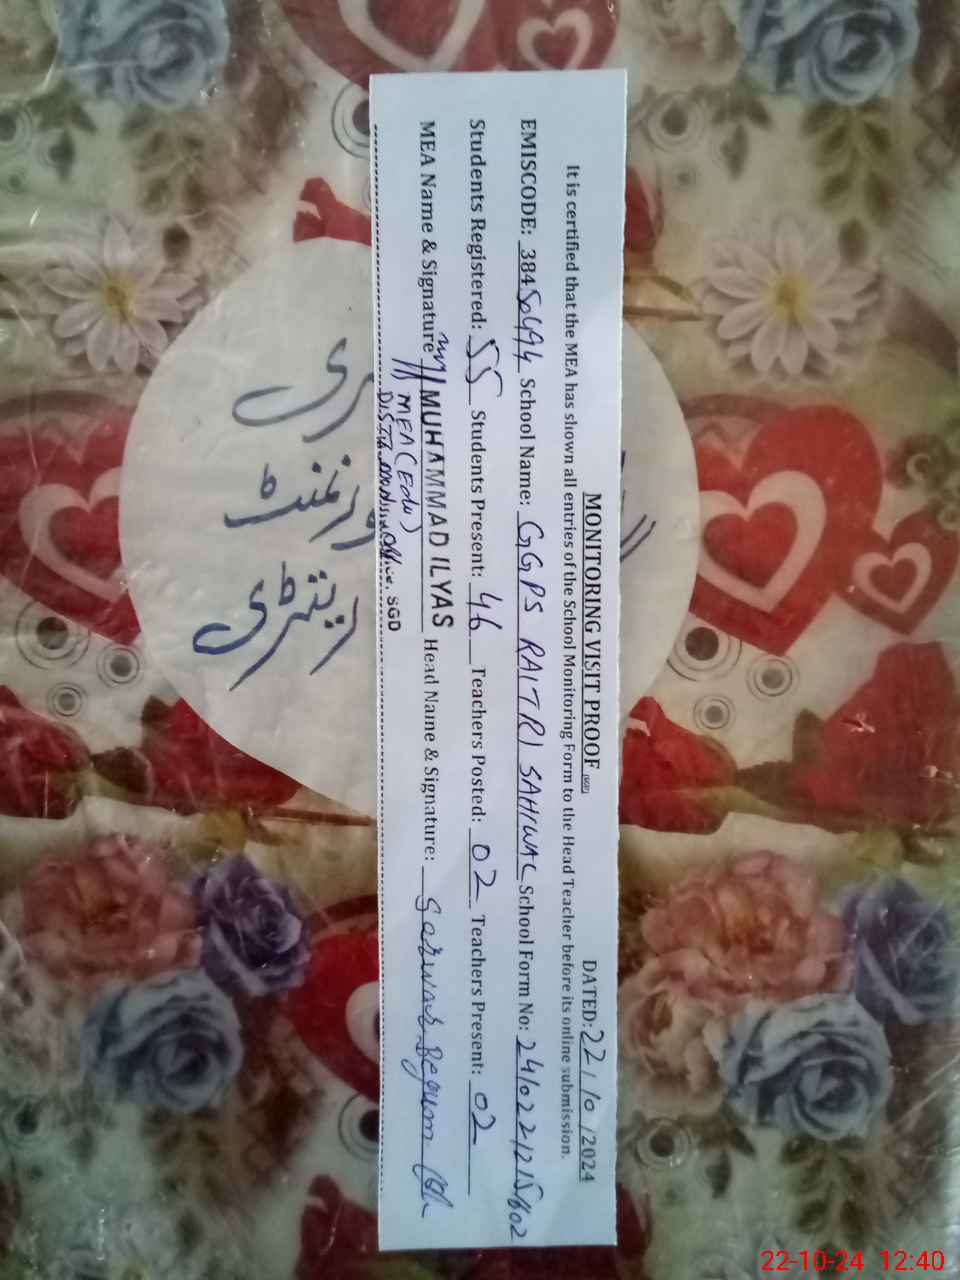 MONITORING VISIT PROOF
DATED: 22/10/2024
It is certified that the MEA has shown all entries of the School Monitoring Form to the Head Teacher before its online submission.
EMISCODE: 38450494 School Name: GGPS RAITRI SAHIWAL School Form No: 2410221215602
Students Registered: 55 Students Present: 46 Teachers Posted: 02 Teachers Present: 02
MEA Name & Signature MUHAMMAD ILYAS Head Name & Signature: Begum
MEA (Edu)
SGD
22-10-24 12:40